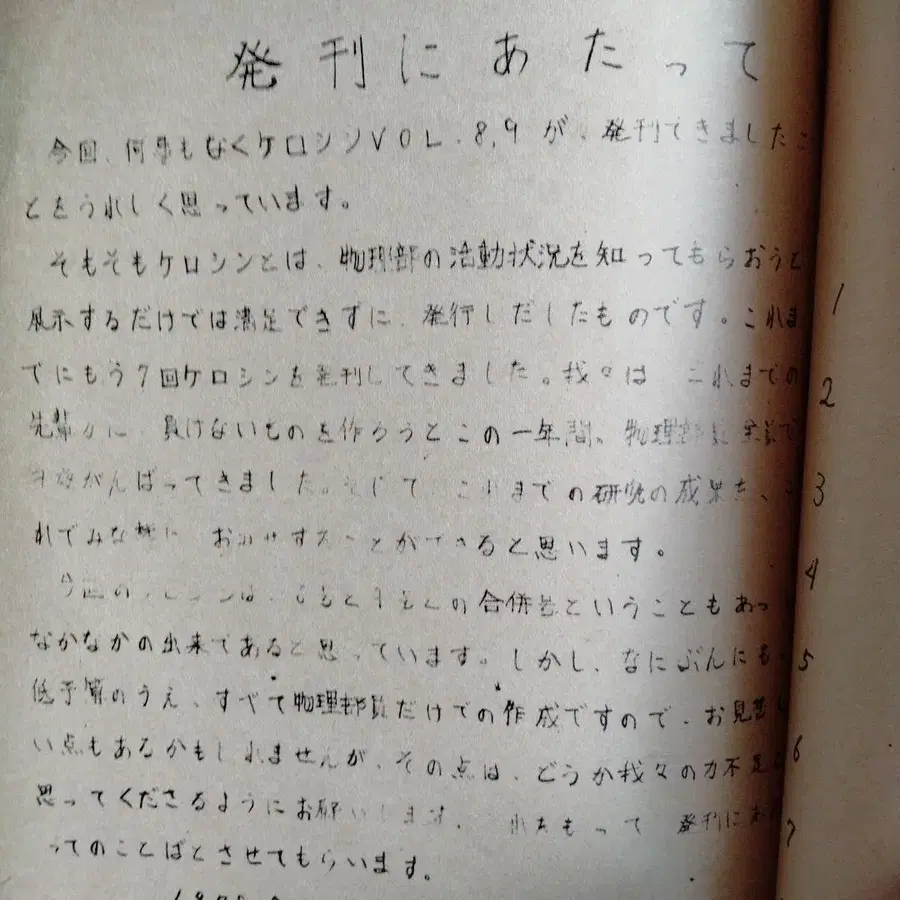 発刊にあたって
今回、何事もなくケロシンVOL.8,9が、発刊できましたこ
とをうれしく思っています。
そもそもケロシンとは、物理部の活動状況を知ってもらおうと
展示するだけでは満足できずに、発行しだしたものです。これま
でにもう7回ケロシンを発刊してきました。我々は これまでの
先輩方に 負けないものを作ろうとこの一年間、物理部員全員で
がんばってきました。そして これまでの研究の成果を、こ
れでみな様に おみせすることができると思います。
今回のケロシンは、の合併号ということもあっ
なかなかの出来であると思っています。しかし、なにぶんにも
低予算のうえ、すべて物理部員だけでの作成ですので、お見苦し
い点もあるかもしれませんが、その点は、どうか我々の力不足と
思ってくださるようにお願いします。 これをもって 発刊にあた
ってのことばとさせてもらいます。
1
2
3
4
5
6
7